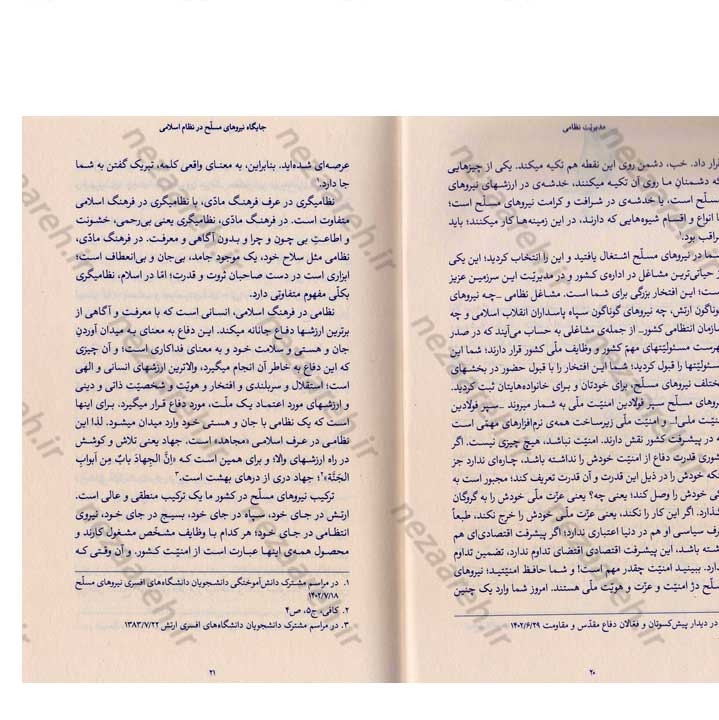 مدیریّت نظامی
قرار داد. خب، دشمن روی این نقطه هم تکیه میکند. یکی از چیزهایی
که دشمنانِ ما روی آن تکیه میکنند، خدشه‌ی در ارزشهای نیروهای
مسلّح است، یا خدشه‌ی در شرافت و کرامت نیروهای مسلّح است؛
با انواع و اقسام شیوه‌هایی که دارند، در این زمینه‌ها کار میکنند؛ باید
مراقب بود.¹
شما در نیروهای مسلّح اشتغال یافتید و این را انتخاب کردید؛ این یکی
از حیاتی‌ترین مشاغل در اداره‌ی کشور و در مدیریّت این سرزمین عزیز
است؛ این افتخار بزرگی برای شما است. مشاغل نظامی _چه نیروهای
گوناگون ارتش، چه نیروهای گوناگون سپاه پاسداران انقلاب اسلامی و چه
سازمان انتظامی کشور_ از جمله‌ی مشاغلی به حساب می‌آیند که در صدر
فهرست مسئولیّتهای مهمّ کشور و وظایف ملّی کشور قرار دارند؛ شما این
مسئولیّتها را قبول کردید؛ شما این افتخار را با قبول حضور در بخشهای
مختلف نیروهای مسلّح، برای خودتان و برای خانواده‌هایتان ثبت کردید.
نیروهای مسلّح سپر فولادین امنیّت ملّی به شمار میروند _سپر فولادین
امنیّت ملّی!_ و امنیّت ملّی زیرساخت همه‌ی نرم‌افزارهای مهمّی است
که در پیشرفت کشور نقش دارند. امنیّت نباشد، هیچ چیزی نیست. اگر
کشوری قدرت دفاع از امنیّت خودش را نداشته باشد، چاره‌ای ندارد جز
اینکه خودش را در ذیل این قدرت و آن قدرت تعریف کند؛ مجبور است به
یکی خودش را وصل کند؛ یعنی چه؟ یعنی عزّت ملّی خودش را به گروگان
بگذارد. اگر این کار را نکند، یعنی عزّت ملّی خودش را خرج نکند، طبعاً
حرف سیاسی او هم در دنیا اعتباری ندارد؛ اگر پیشرفت اقتصادی‌ای هم
داشته باشد، این پیشرفت اقتصادی اقتضای تداوم ندارد، تضمین تداوم
ندارد. ببینید امنیّت چقدر مهم است! و شما حافظ امنیّتید؛ نیروهای
مسلّح دژ امنیّت و عزّت و هویّت ملّی هستند. امروز شما وارد یک چنین
در دیدار پیش‌کسوتان و فعّالان دفاع مقدّس و مقاومت ۱۴۰۲/۶/۲۹
۲۰
جایگاه نیروهای مسلّح در نظام اسلامی
عرصه‌ای شده‌اید. بنابراین، به معنای واقعی کلمه، تبریک گفتن به شما
جا دارد.¹
نظامیگری در عرف فرهنگ مادّی، با نظامیگری در فرهنگ اسلامی
متفاوت است. در فرهنگ مادّی، نظامیگری یعنی بی‌رحمی، خشونت
و اطاعتِ بی چون و چرا و بدون آگاهی و معرفت. در فرهنگ مادّی،
نظامی مثل سلاح خود، یک موجود جامد، بی‌جان و بی‌انعطاف است؛
ابزاری است در دست صاحبان ثروت و قدرت؛ امّا در اسلام، نظامیگری
بکلّی مفهوم متفاوتی دارد.
نظامی در فرهنگ اسلامی، انسانی است که با معرفت و آگاهی از
برترین ارزشها دفاع جانانه میکند. این دفاع به معنای به میدان آوردن
جان و هستی و سلامت خود و به معنای فداکاری است؛ و آن چیزی
که این دفاع به خاطر آن انجام میگیرد، والاترین ارزشهای انسانی و الهی
است؛ استقلال و سربلندی و افتخار و هویّت و شخصیّت ذاتی و دینی
و ارزشهای مورد اعتماد یک ملّت، مورد دفاع قرار میگیرد. برای اینها
است که یک نظامی با جان و هستی خود وارد میدان میشود. لذا این
نظامی در عرف اسلامی «مجاهد» است. جهاد یعنی تلاش و کوشش
در راه ارزشهای والا؛ و برای همین است که «اِنَّ الجِهادَ بابٌ مِن اَبوابِ
الجَنَّة»²؛ جهاد دری از درهای بهشت است.³
ترکیب نیروهای مسلّح در کشور ما یک ترکیب منطقی و عالی است.
ارتش در جای خود، سپاه در جای خود، بسیج در جای خود، نیروی
انتظامی در جای خود؛ هر کدام با وظایف مشخّص مشغول کارند و
محصول همه‌ی اینها عبارت است از امنیّت کشور. و آن وقتی که
۱. در مراسم مشترک دانش‌آموختگی دانشجویان دانشگاه‌های افسری نیروهای مسلّح
۱۴۰۲/۷/۱۸
۲. کافی، ج۵، ص۴
۳. در مراسم مشترک دانشجویان دانشگاه‌های افسری ارتش ۱۳۸۳/۷/۲۲
۲۱
nezaareh.ir